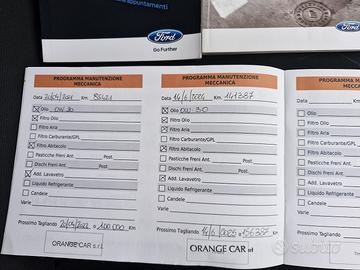 appuntamenti
Ford
Go Further
Ford
PROGRAMMA MANUTENZIONE
MECCANICA
Data 20/04/2021 Km.
Olio OW 30
Filtro Olio
Filtro Aria
Filtro Carburante/GPL
Filtro Abitacolo
Pasticche Freni Ant. Post.
Dischi Freni Ant. Post.
Add. Lavavetro
Liquido Refrigerante
Candele
Varie
Prossimo Tagliando 20/04/2022 o 100.000 Km
ORANGE CAR s.r.l.
PROGRAMMA MANUTENZIONE
MECCANICA
Data 14/6/2024 Km. 141387
Olio OW-30
Filtro Olio
Filtro Aria
Filtro Carburante/GPL
Filtro Abitacolo
Pasticche Freni Ant. Post.
Dischi Freni Ant. Post.
Add. Lavavetro
Liquido Refrigerante
Candele
Varie
Prossimo Tagliando 14/6/2025 o 156387 Km
ORANGE CAR srl
PROGRAMMA
Data
Olio
Filtro Olio
Filtro Aria
Filtro Carburante
Filtro Abitacolo
Pasticche Freni
Dischi Freni Ant.
Add. Lavavetro
Liquido Refrigerante
Candele
Varie
Prossimo Tagliando
subito